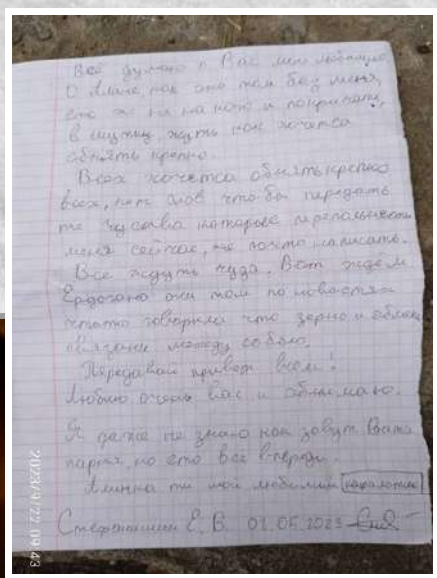 Всё думаю о Вас мои любимые
О Алане, как она там без меня,
ето ж ни на кого и покричать,
в шутку, жуть как хочется
обнять крепко.
Всех хочется обнять крепко
всех, нет слов что-бы передать
те чуства которые переполняют
меня сейчас, не то что написать.
Все ждуть чуда. Вот ждём
Ердогана они там по новостях
чтото говорили что зерно и
связани между собою.
Передавай привет всем!
Люблю очень вас и обнимаю.
Я даже не знаю как зовут Вата
парня, но ето всё впереди.
ти мой любимий
Е. В. 01.05.2023
2023/9/22 09:43